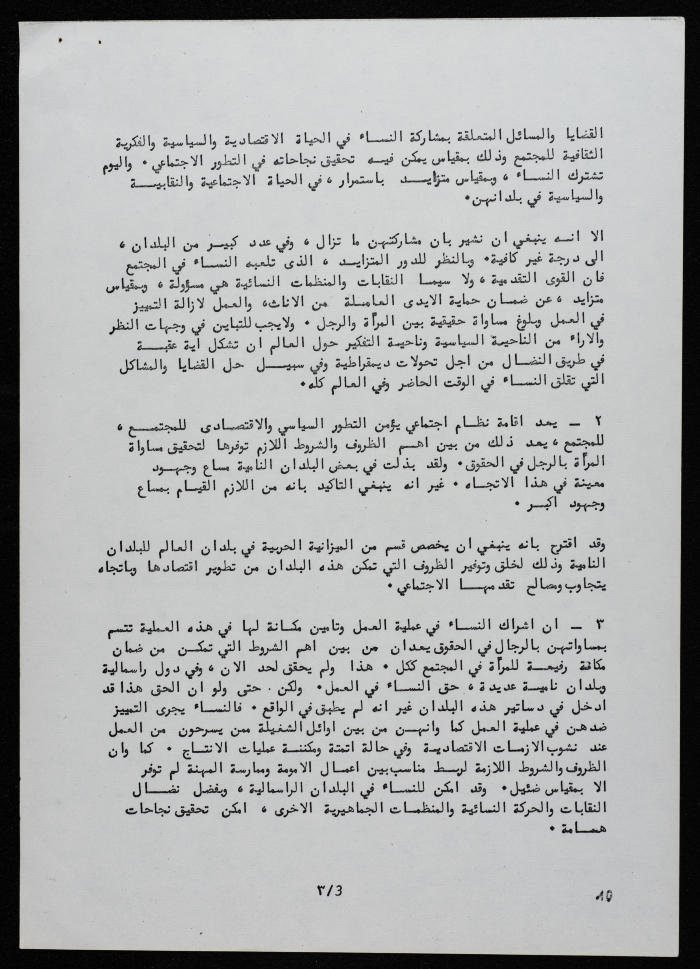 القضايا والمسائل المتعلقة بمشاركة النساء في الحياة الاقتصادية والسياسية والفكرية
الثقافية للمجتمع وذلك بمقياس يمكن فيه تحقيق نجاحاته في التطور الاجتماعي • واليوم
تشترك النساء ، وبمقياس متزايد باستمرار ، في الحياة الاجتماعية والنقابية
والسياسية في بلدانهن •
الا انه ينبغي ان نشير بان مشاركتهن ما تزال ، وفي عدد كبير من البلدان ،
الى درجة غير كافية • وبالنظر للدور المتزايد ، الذى تلعبه النساء في المجتمع
فان القوى التقدمية ، ولا سيما النقابات والمنظمات النسائية هي مسؤولة ، وبمقياس
متزايد ، عن ضمان حماية الايدى العاملة من الاناث ، والعمل لازالة التمييز
في العمل وبلوغ مساواة حقيقية بين المرأة والرجل • ولايجب للتباين في وجهات النظر
والاراء من الناحية السياسية وناحية التفكير حول العالم ان تشكل أية عقبة
في طريق النضال من اجل تحولات ديمقراطية وفي سبيل حل القضايا والمشاكل
التي تقلق النساء في الوقت الحاضر وفي العالم كله •
٢ – يعد اقامة نظام اجتماعي يؤمن التطور السياسي والاقتصادى للمجتمع ،
للمجتمع ، يعد ذلك من بين اهم الظروف والشروط اللازم توفرها لتحقيق مساواة
المرأة بالرجل في الحقوق • ولقد بذلت في بعض البلدان النامية مساع وجهود
معينة في هذا الاتجاه • غير انه ينبغي التاكيد بانه من اللازم القيام بمساع
وجهود اكبر •
وقد اقترح بانه ينبغي ان يخصص قسم من الميزانية الحربية في بلدان العالم للبلدان
النامية وذلك لخلق وتوفير الظروف التي تمكن هذه البلدان من تطوير اقتصادها وباتجاه
يتجاوب ومصالح تقدمها الاجتماعي •
٣ – ان اشراك النساء في عملية العمل وتامين مكانة لها في هذه العملية تتسم
بمساواتهن بالرجال في الحقوق يعدان من بين اهم الشروط التي تمكن من ضمان
مكانة رفيعة للمرأة في المجتمع ككل • هذا ولم يحقق لحد الان ، وفي دول راسمالية
وبلدان نامية عديدة ، حق النساء في العمل • ولكن حتى ولو ان الحق هذا قد
ادخل في دساتير هذه البلدان غير انه لم يطبق في الواقع • فالنساء يجرى التمييز
ضدهن في عملية العمل كما وانهن من بين اوائل الشغيلة ممن يسرحون من العمل
عند نشوب الازمات الاقتصادية وفي حالة اتمتة ومكننة عمليات الانتاج • كما وان
الظروف والشروط اللازمة لربط مناسب بين اعمال الامومة وممارسة المهنة لم توفر
الا بمقياس ضئيل • وقد امكن للنساء في البلدان الراسمالية ، وبفضل نضال
النقابات والحركة النسائية والمنظمات الجماهيرية الاخرى ، امكن تحقيق نجاحات
هامة •
٣/3
10